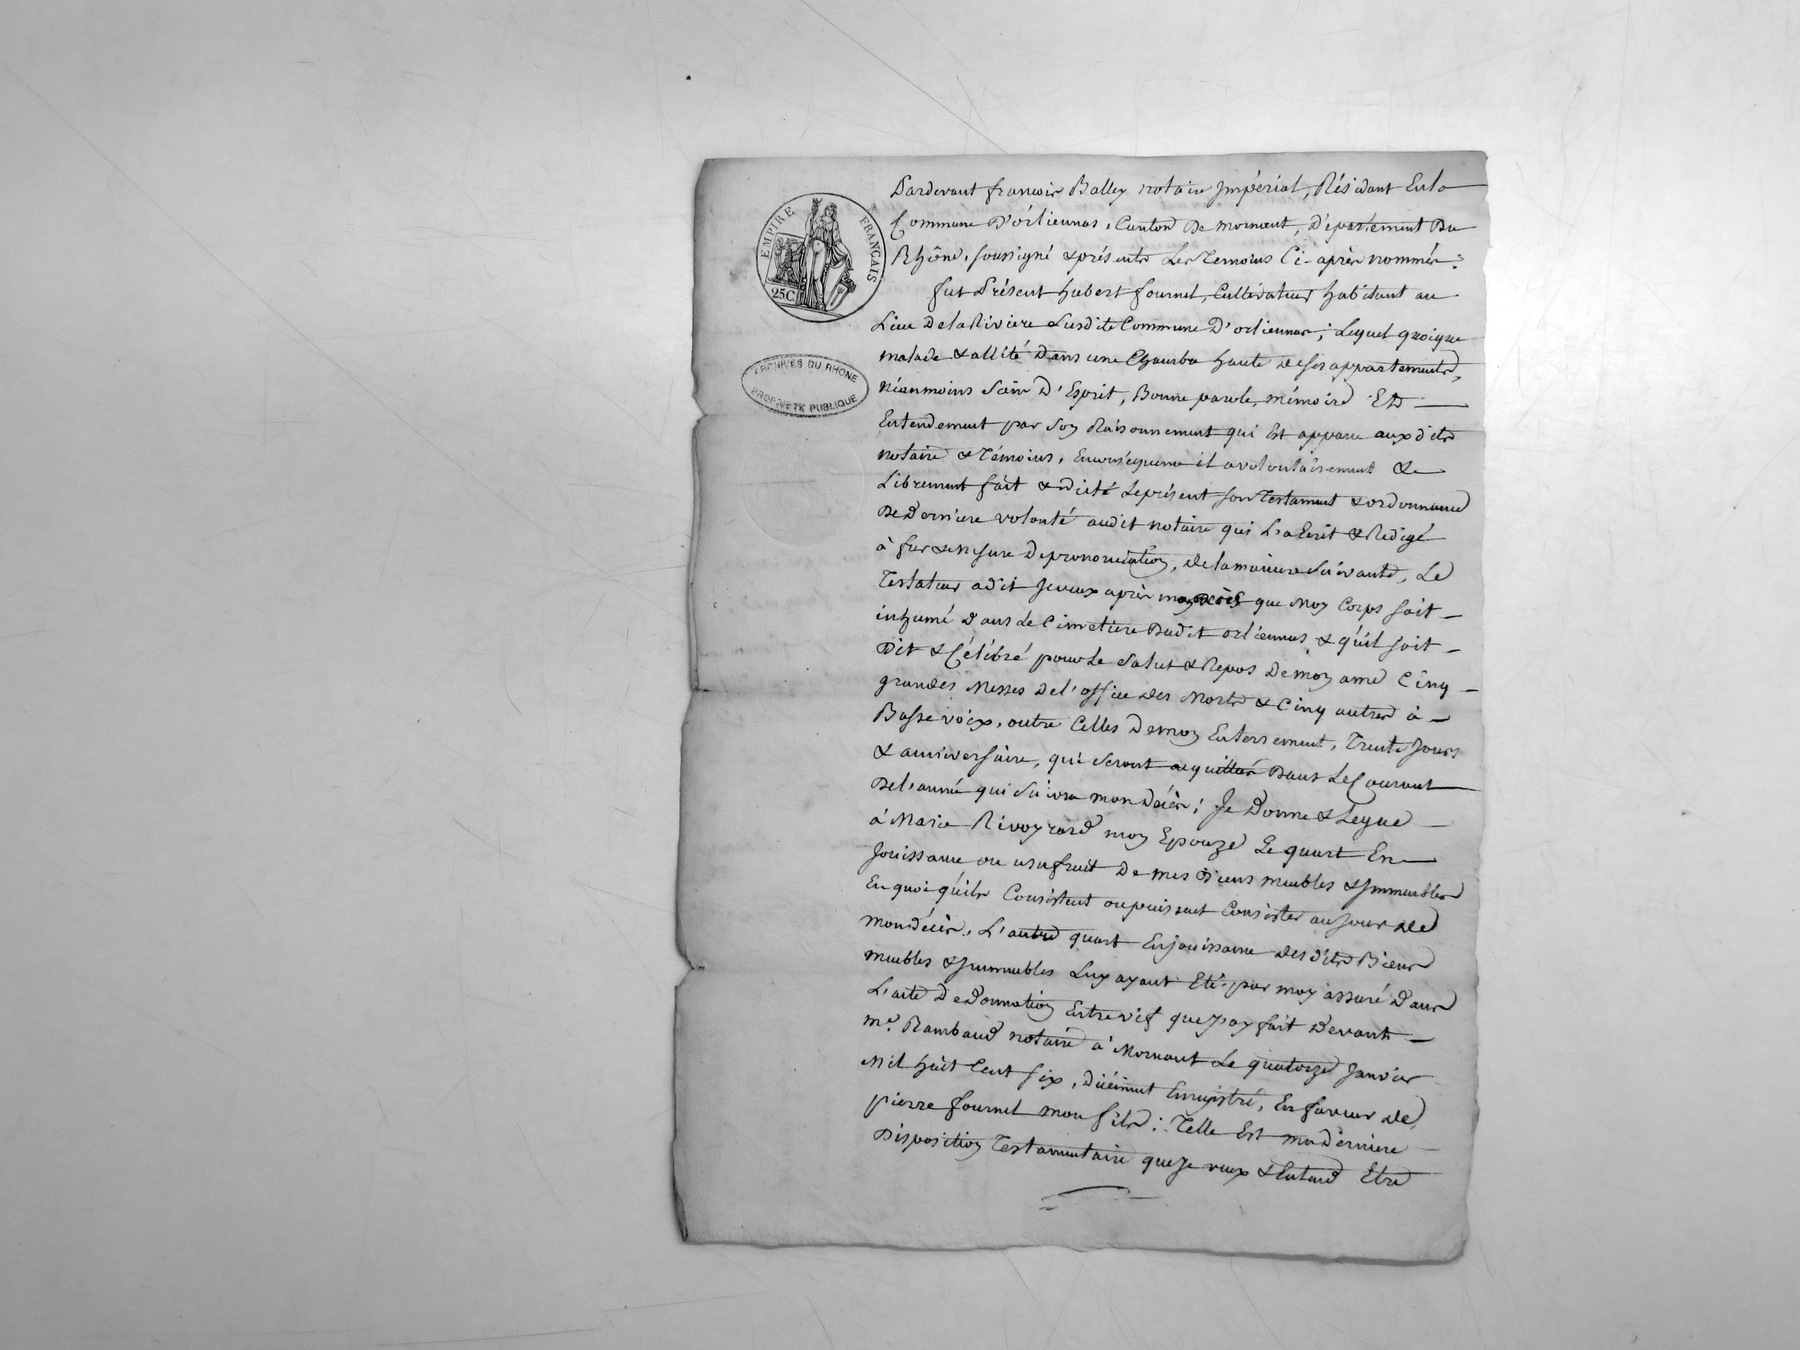 EMPIRE FRANÇAIS
25C
ARCHIVES DU RHONE
PROPRIÉTÉ PUBLIQUE
Pardevant françois Balley notaire Impérial, Résidant En la
Commune D'orliennas, Canton De mornant, Département Du
Rhône, soussigné & présents Les Temoins Ci-après nommés:
fut Présent hubert fournel, Cultivateur habitant au
Lieu De la Riviere Susdite Commune D'orliennas; Lequel quoique
malade & allité Dans une Chambre haute de ses appartements,
néanmoins Sain D'Esprit, Bonne parole, mémoire Et
Entendement par Son Raisonnement qui Est apparu aux dits
notaire & Témoins, En conséquence il a volontairement &
Librement fait & dicté Le présent son Testament & ordonnance
De Derniere volonté audit notaire qui L'a Ecrit & Rédigé
à fur & mesure De prononciation, de la maniere Suivante, Le
Testateur a dit Je veux après mon décès que Mon Corps soit
inhumé Dans Le Cimetiere Dudit orliennas & qu'il soit
Dit & Célébré pour Le Salut & Repos De mon ame Cinq
grandes Messes De l'office des Morts & Cinq autres à
Basse voix, outre Celles De mon Enterrement, Trente Jours
& anniversaire, qui Seront acquittés Dans Le Courant
De L'année qui Suivra mon Décès; Je Donne & Legue
à Marie Rivoyrard mon Epouze Le quart En
Jouissance ou usufruit De mes Biens meubles & Immeubles
En quoi qu'ils Consistent ou puissent Consister au Jour de
mon décès, L'autre quart En jouissance des dits Biens
meubles & Immeubles Luy ayant Eté par moy assuré Dans
L'acte De Donnation Entrevif que J'ay fait Devant
me. Rambaud notaire à Mornant Le quatorze Janvier
Mil huit Cent six, düement Enregistré, En faveur de
pierre fournel mon fils; Telle Est ma derniere
Disposition Testamentaire que Je veux & Entend Etre